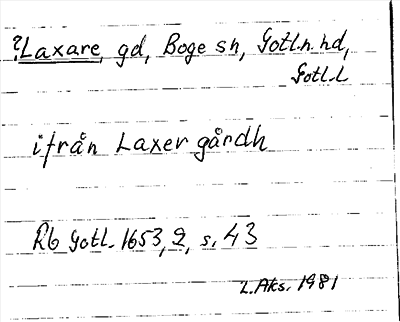 ?Laxare, gd, Boge sn, Gotl.n. hd,
Gotl.l
ifrån Laxer gårdh
Rb Gotl. 1653, 2, s. 43
L.Aks. 1981